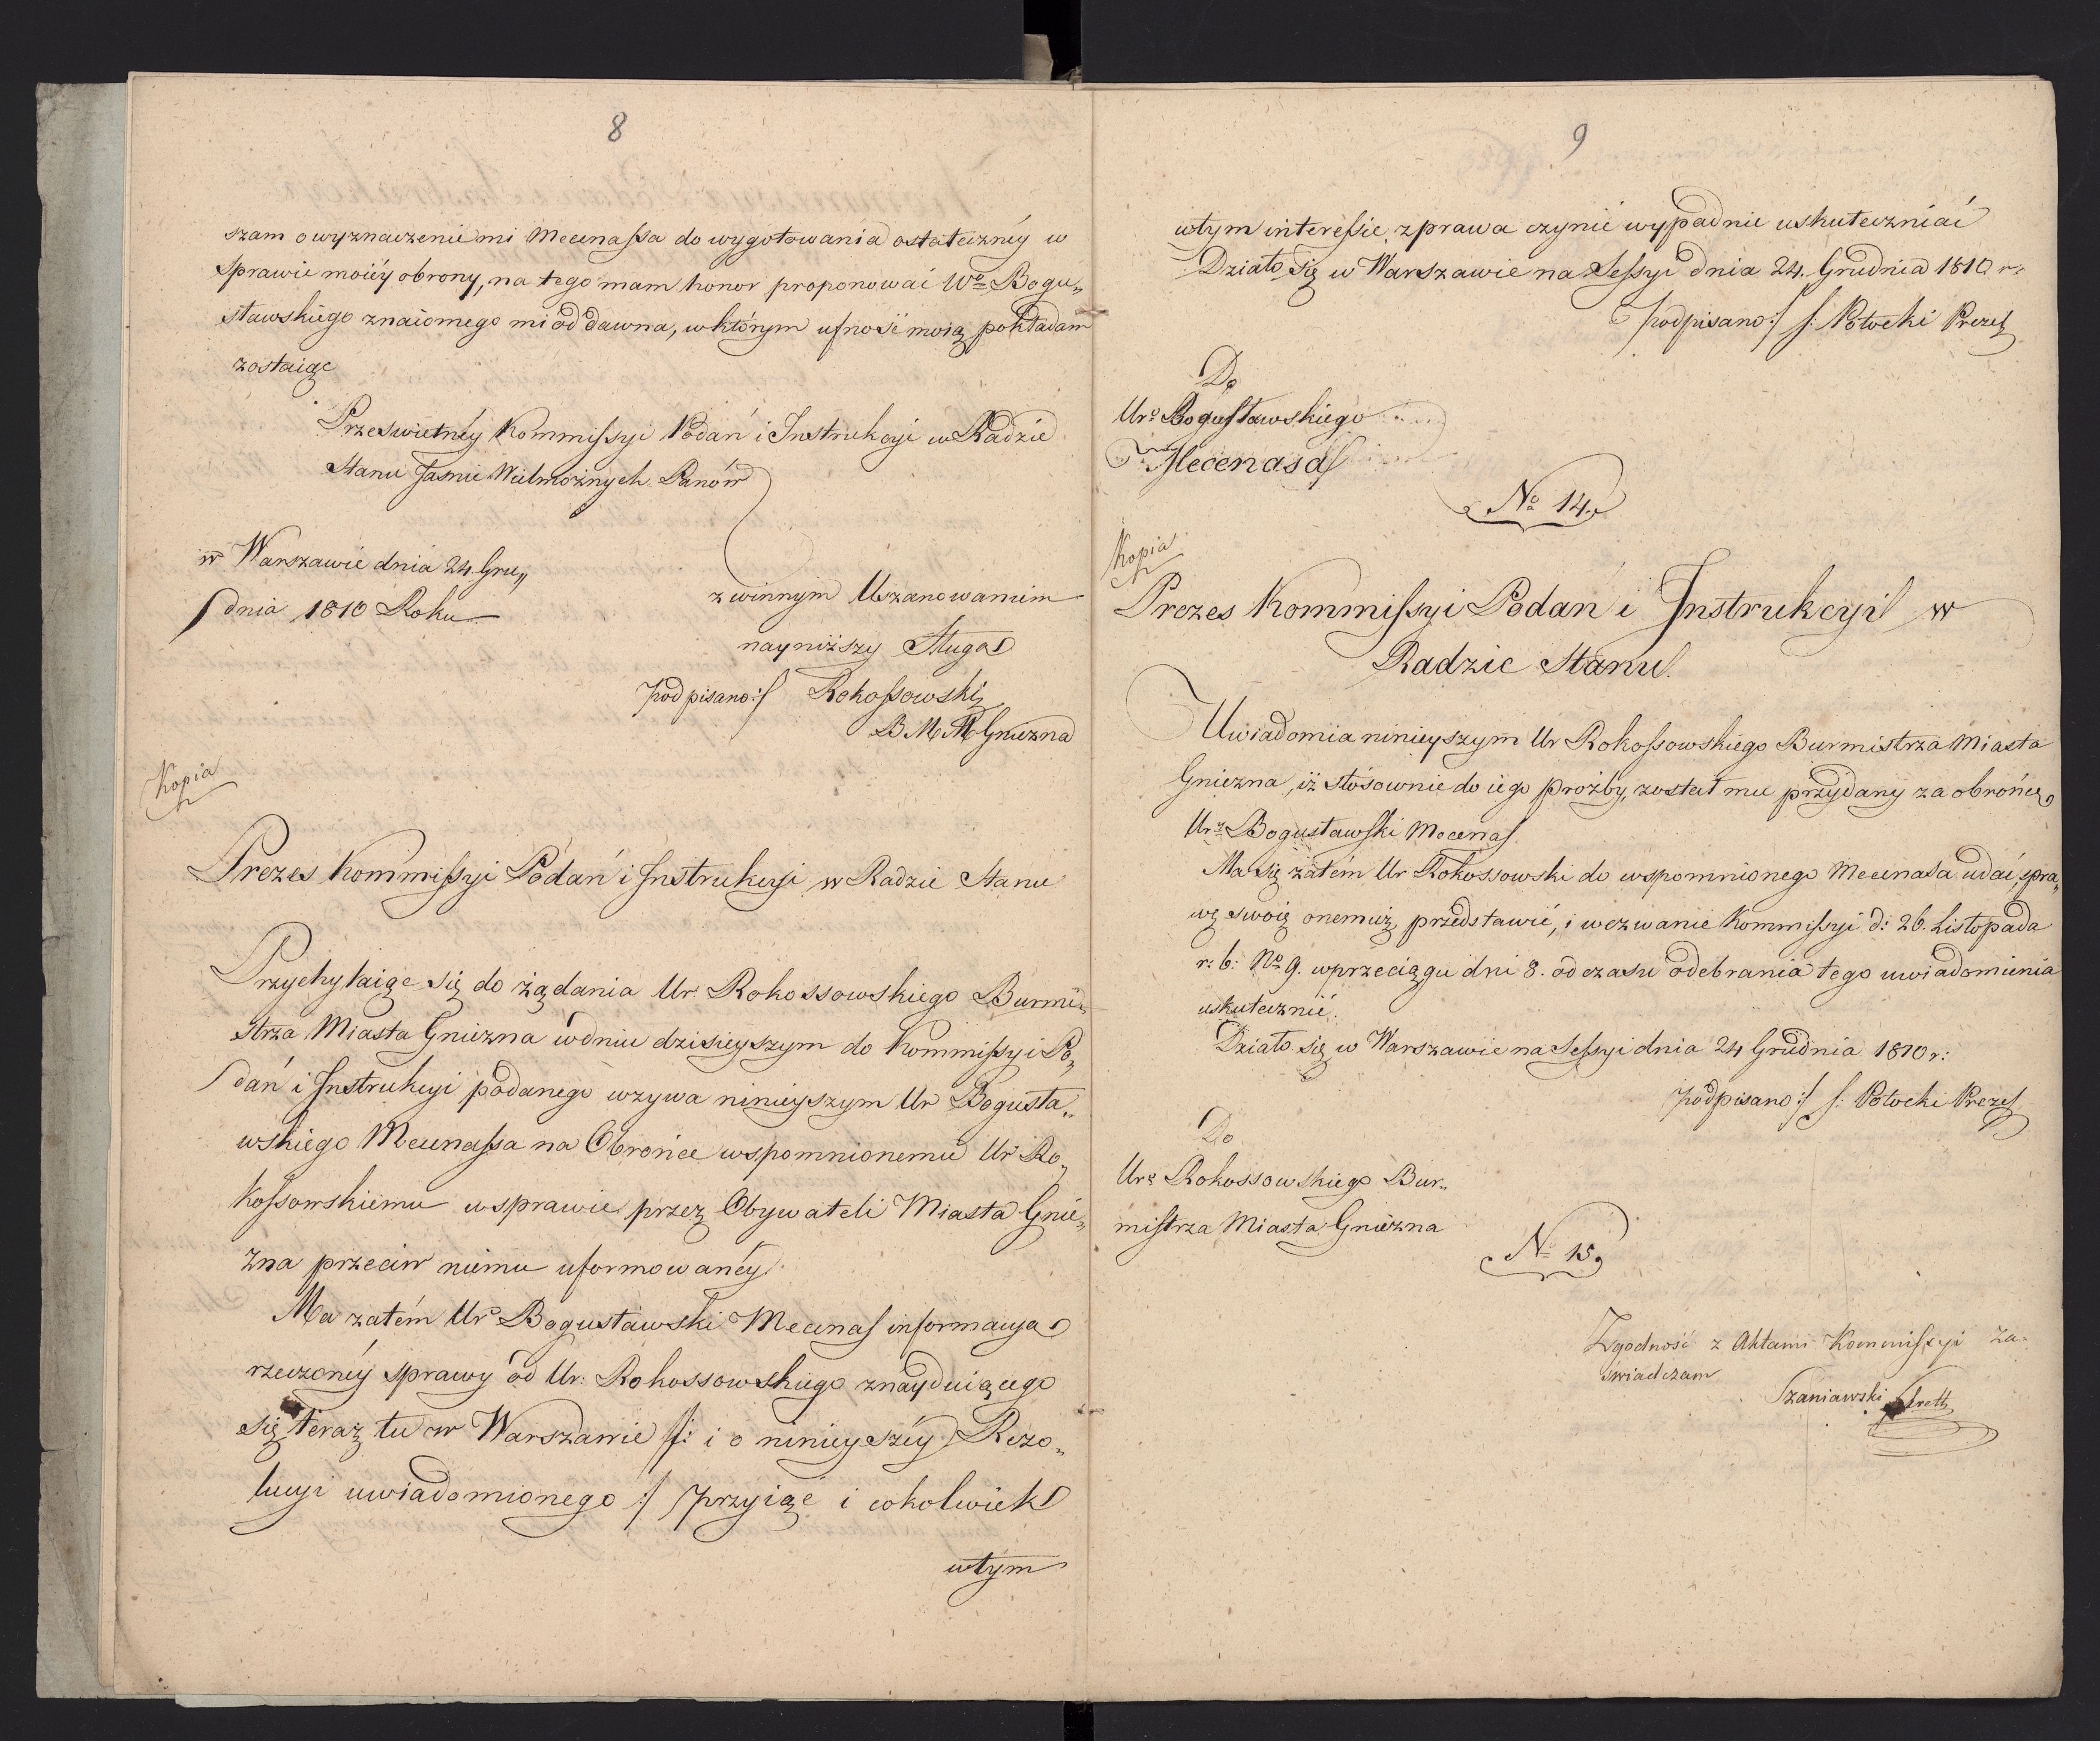 8
szam o wyznaczenie mi Mecenassa do wygotowania ostateczney w
sprawie moiéy obrony, na tego mam honor proponować Wo Bogu„
sławskiego znaiomego mi od dawna, w którym ufność moią pokładam
zostaiąc
Prześwietnéy Kommissyi Podań i Instrukcyi w Radzie
Stanu Jasnie Wielmożnych Panów
w Warszawie dnia 24. Gru„
dnia 1810 Roku
z winnym Uszanowaniem
nayniższy Sługa
podpisano:/ Rokossowski
B M M Gniezna
Kopia
Prezes Kommissyi Podań i Instrukcyi w Radzie Stanu
Przychylaiąc się do żądania Ur. Rokossowskiego Burmi„
strza Miasta Gniezna w dniu dzisieyszym do Kommissyi Po„
dań i Instrukcyi podanego wzywa ninieyszym Ur Bogusła„
wskiego Mecenassa na Obrońce wspomnionemu Ur Ro„
kossowskiemu w sprawie przez Obywateli Miasta Gnie„
zna przeciw niemu uformowanéy.
Ma zatém Ur Bogusławski Mecenas informacya
rzeczonéy sprawy od Ur: Rokossowskiego znayduiącego
się teraz tu w Warszawie /: i o ninieyszéy Rezo„
lucyi uwiadomionego :/ przyiąć i cokolwiek
wtym
9
wtym interessie zprawa czynić wypadnie uskuteczniać
Działo się w Warszawie na Sessyi dnia 24. Grudnia 1810 r:
podpisano:/ S: Potocki Prezes
Do
Uro Bogusławskiego
Mecenasa
No 14.
Kopia
Prezes Kommissyi Podań i Instrukcyi w
Radzie Stanu.
Uwiadomia ninieyszym Ur Rokossowskiego Burmistrza Miasta
Gniezna, iż stósownie do iego prożby, został mu przydany za obrońcę
Ur Bogusławski Mecenas.
Ma się zatém Ur Rokossowski do wspomnionego Mecenasa udać, spra„
wę swoię onemuż przedstawić, i wezwanie Kommissyi d: 26. Listopada
r: b: No 9. w przeciągu dni 8. od czasu odebrania tego uwiadomienia
uskutecznić.
Działo się w Warszawie na Sessyi dnia 24 Grudnia 1810 r:
podpisano:/ S: Potocki Prezes
Do
Uro Rokossowskiego Bur„
mistrza Miasta Gniezna
No 15.
Zgodność z Aktami Kommissyi za-
świadczam
Szaniawski Sekret